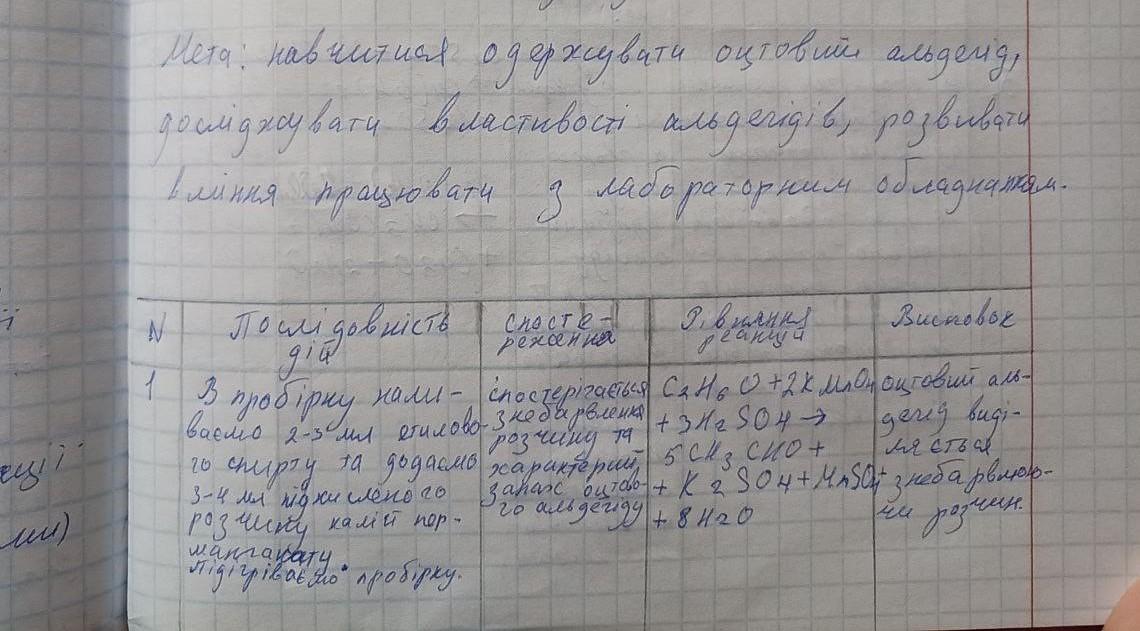 Мета: навчитися одержувати оцтовий альдегід,
досліджувати властивості альдегідів, розвивати
вміння працювати з лабораторним обладнанням.
N
Послідовність
дій
спосте-
реження
Рівняння
реакцій
Висновок
1
В пробірку нали-
ваємо 2-3 мл етилово-
го спирту та додаємо
3-4 мл підкисленого
розчину калій пер-
манганату
Підігріваємо пробірку.
спостерігається
знебарвлення
розчину та
характерий
запах оцтово-
го альдегіду
C2H6O+2KMnO4
+3H2SO4→
5CH3CHO+
+K2SO4+MnSO4+
+8H2O
оцтовий аль-
дегід виді-
ляється
знебарвлюю-
чи розчин.
ції
ми)